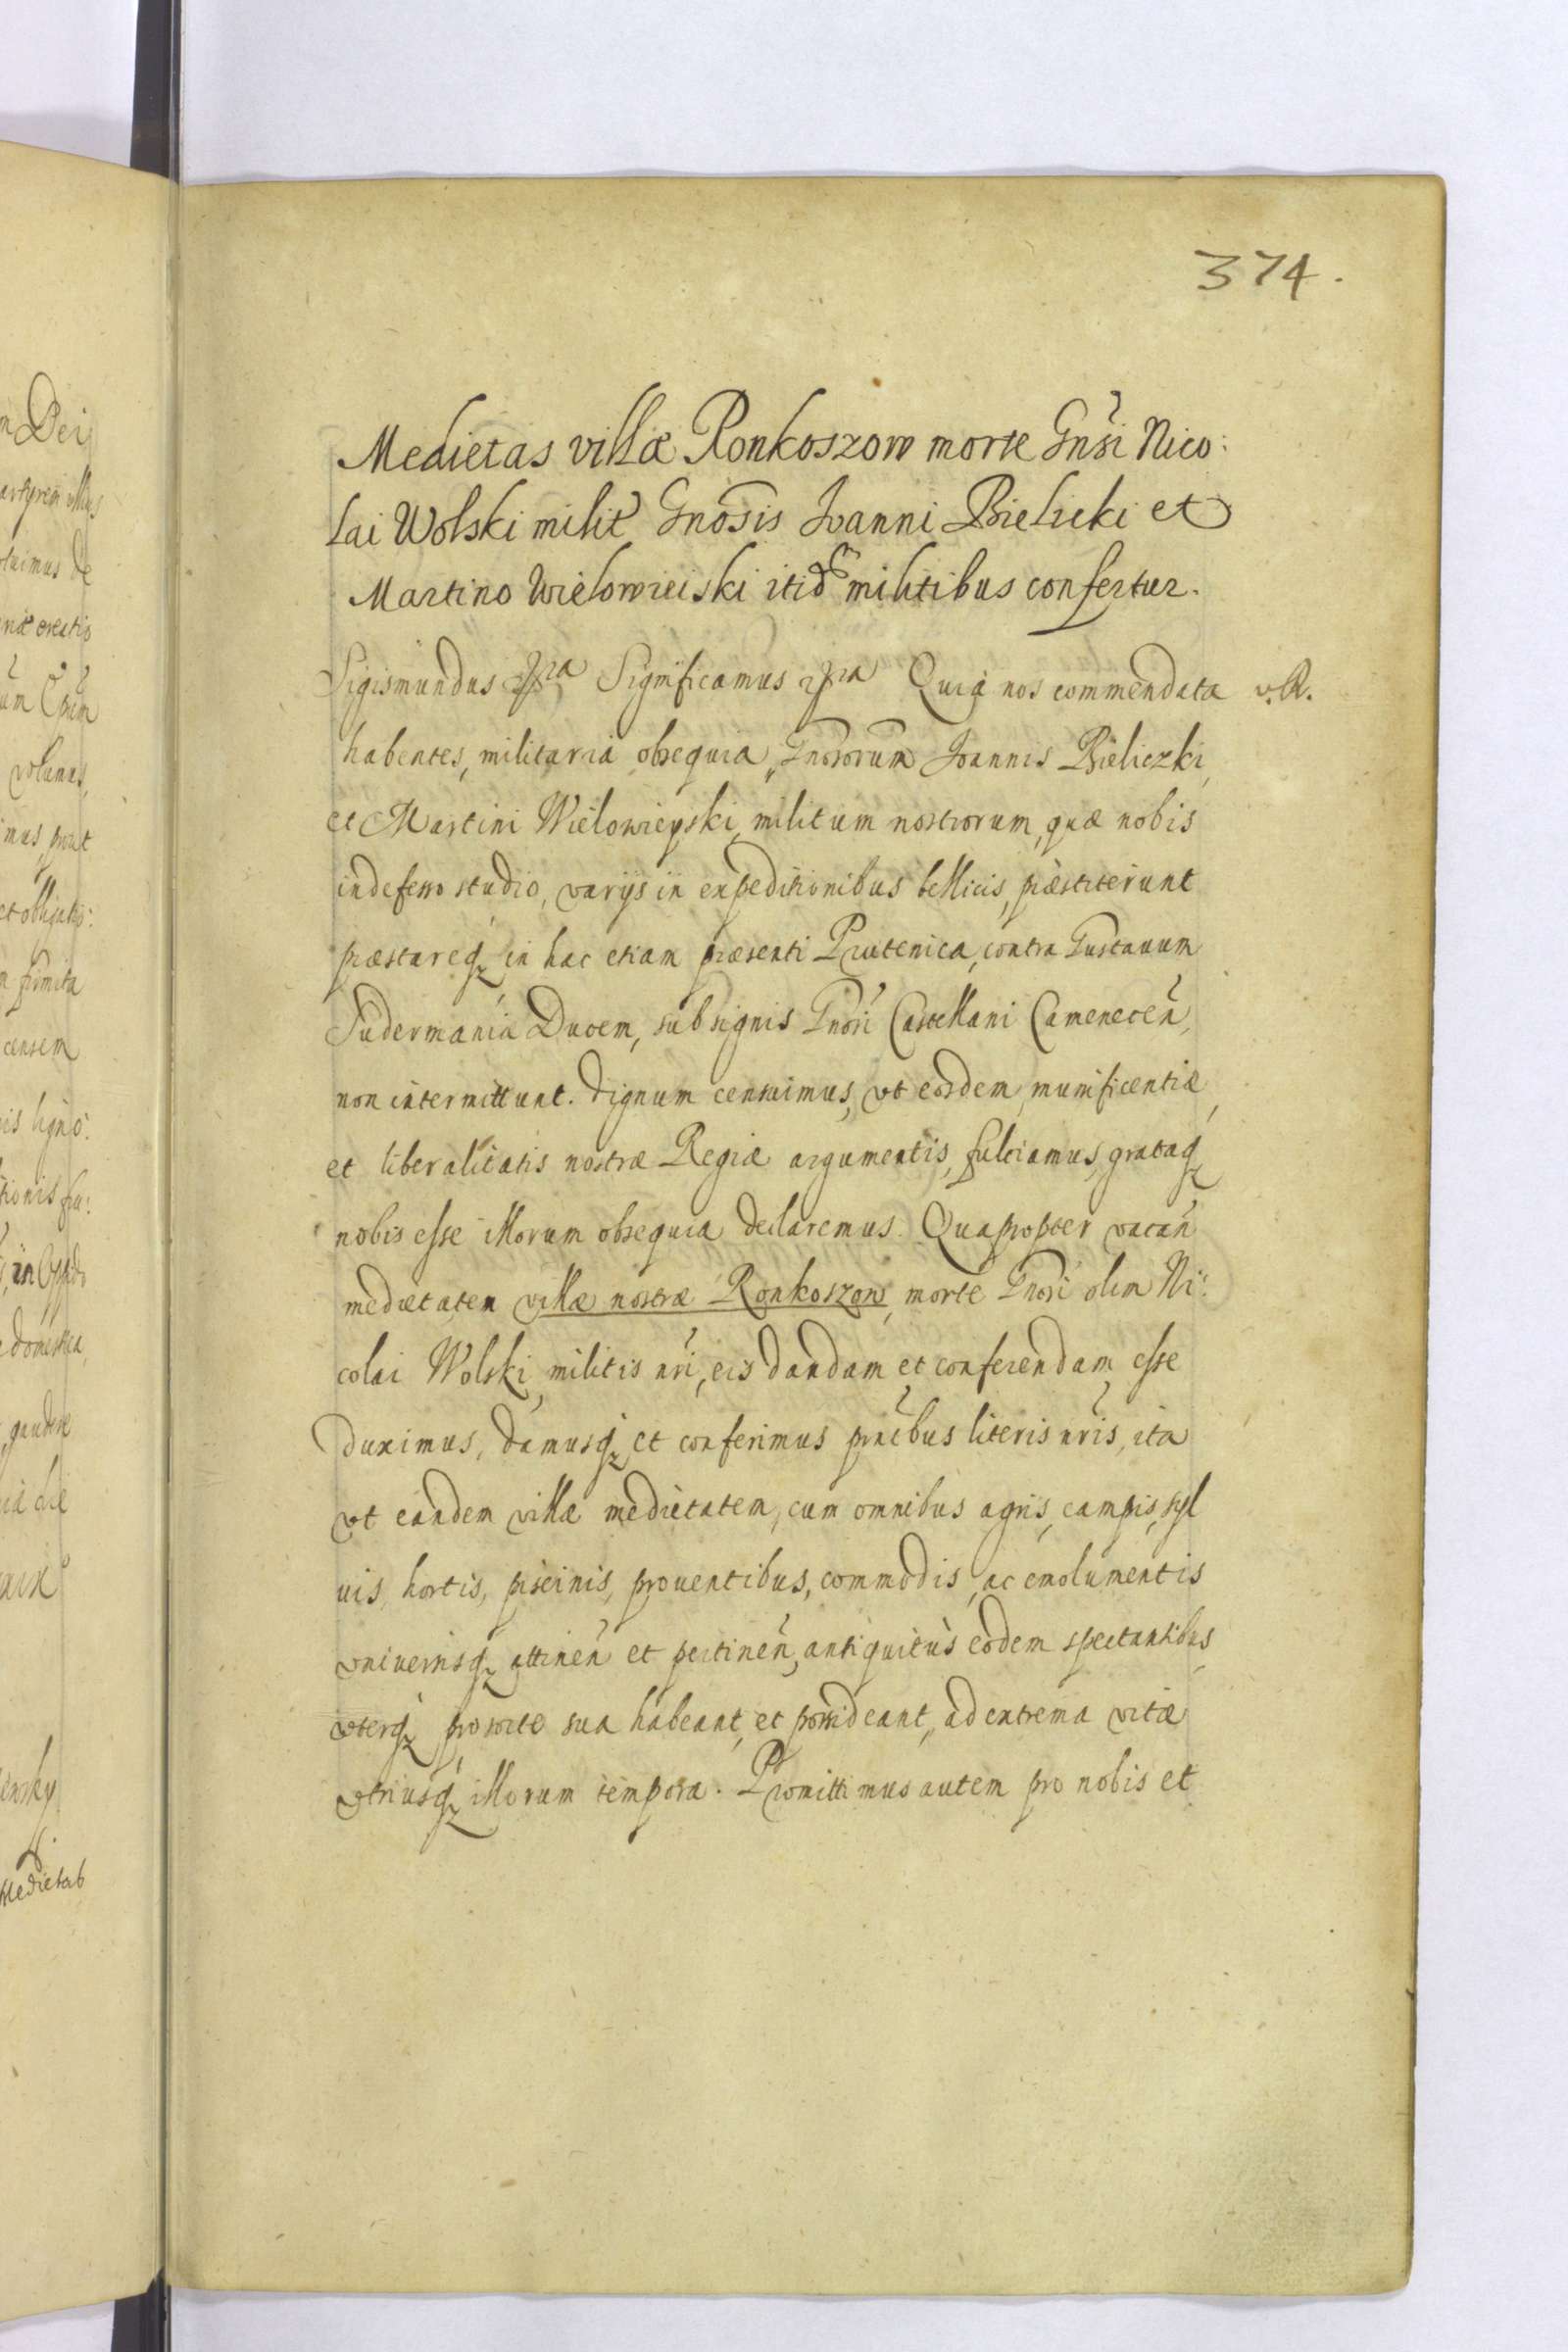 374.
Medietas villæ Ronkoszow morte Gnsi Nico:
lai Wolski milit Gnosis Ioanni Bielicki et
Martino Wielowieiski itid militibus confertur.
Sigismundus Significamus Quia nos commendata v.R.
habentes, militaria obsequia, Gnosorum Ioannis Bieliczki,
et Martini Wielowieyski, militum nostrorum, quæ nobis
indefesso studio, varijs in expeditionibus bellicis, præstiterunt
præstareq in hac etiam præsenti Prutenica, contra Gustauum
Sudermaniæ Ducem, sub signis Gnosi Castellani Camenecen,
non intermittunt. Dignum censuimus, vt eosdem, munificentiæ,
et liberalitatis nostræ Regiæ argumentis, fulciamus, grataq
nobis esse illorum obsequia declaremus. Quapropter vacan
medietatem villæ nostræ Ronkoszow, morte Gnosi olim Ni:
colai Wolski, militis nri, eis dandam et conferendam esse
duximus, damusq et conferimus pntibus literis nris, ita
vt eandem villæ medietatem, cum omnibus agris, campis, syl
uis, hortis, piscinis, prouentibus, commodis, ac emolumentis
vniuersisq attinen et pertinen, antiquitùs eodem spectantibus,
vterq pro sorte sua habeant, et possideant, ad extrema vitæ
vtriusq illorum tempora. Promittimus autem pro nobis et